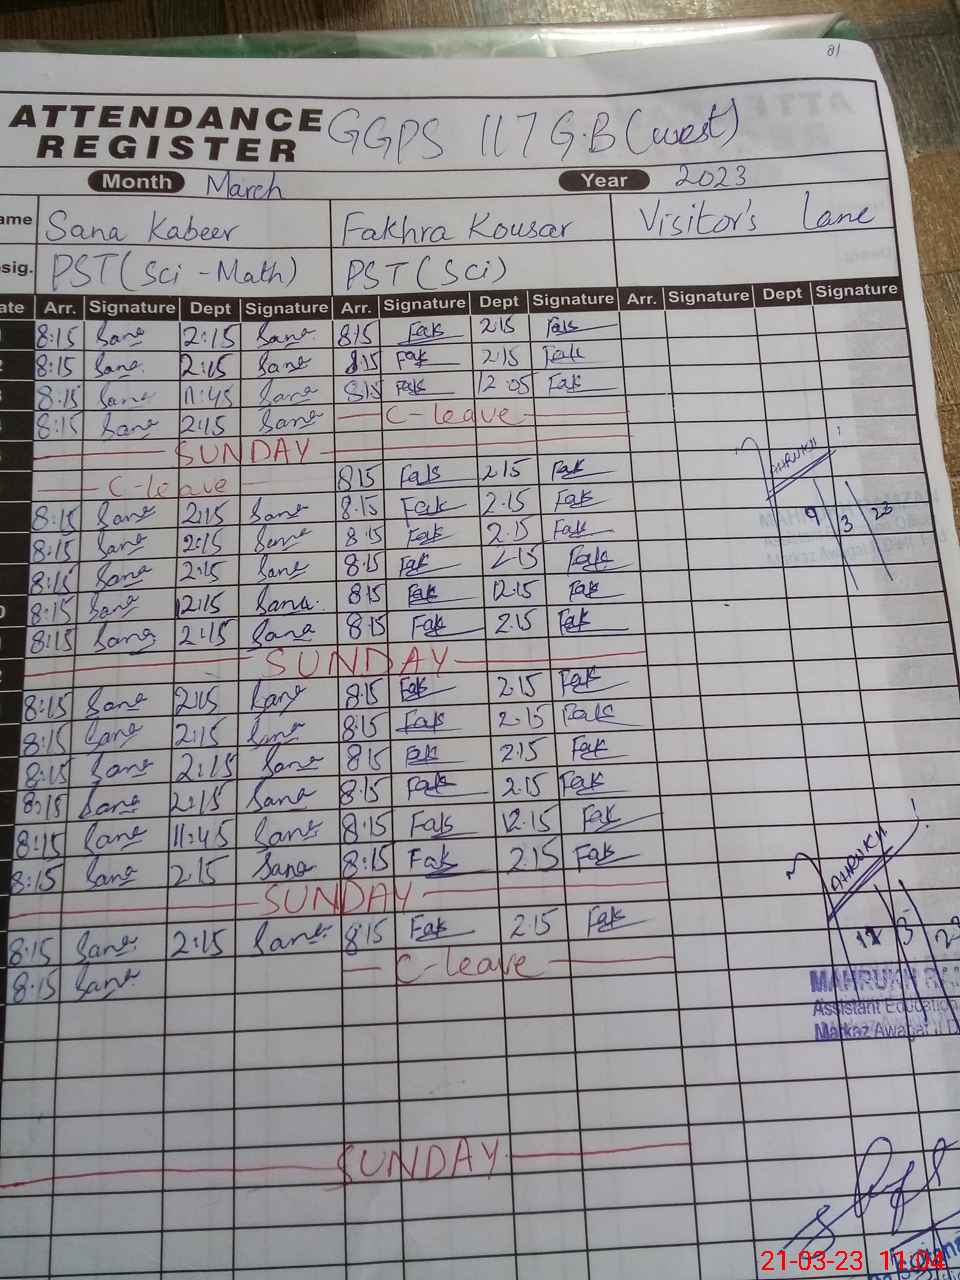 81
ATTENDANCE REGISTER GGPS 117 G.B (west)
Month March Year 2023
ame Sana Kabeer Fakhra Kousar Visitor's Lane
sig. PST (Sci - Math) PST (Sci)
ate Arr. Signature Dept Signature Arr. Signature Dept Signature Arr. Signature Dept Signature
8:15 Sana 2:15 Sana 8:15 Fak 2:15 Fak
8:15 Sana 2:15 Sana 8:15 Fak 2:15 Fak
8:15 Sana 11:45 Sana 8:15 Fak 12:05 Fak
8:15 Sana 2:15 Sana C-leave
SUNDAY
C-leave 8:15 Fak 2:15 Fak
8:15 Sana 2:15 Sana 8:15 Fak 2:15 Fak
8:15 Sana 2:15 Sana 8:15 Fak 2:15 Fak
8:15 Sana 2:15 Sana 8:15 Fak 2:15 Fak
8:15 Sana 12:15 Sana 8:15 Fak 12:15 Fak
8:15 Sana 2:15 Sana 8:15 Fak 2:15 Fak
SUNDAY
8:15 Sana 2:15 Sana 8:15 Fak 2:15 Fak
8:15 Sana 2:15 Sana 8:15 Fak 2:15 Fak
8:15 Sana 2:15 Sana 8:15 Fak 2:15 Fak
8:15 Sana 2:15 Sana 8:15 Fak 2:15 Fak
8:15 Sana 11:45 Sana 8:15 Fak 12:15 Fak
8:15 Sana 2:15 Sana 8:15 Fak 2:15 Fak
SUNDAY
8:15 Sana 2:15 Sana 8:15 Fak 2:15 Fak
8:15 Sana C-leave
SUNDAY
MAHRUKH
9/3/23
MAHRUKH
MAHRUKH
Assistant Education
Markaz Awagat II
21-03-23 11:04